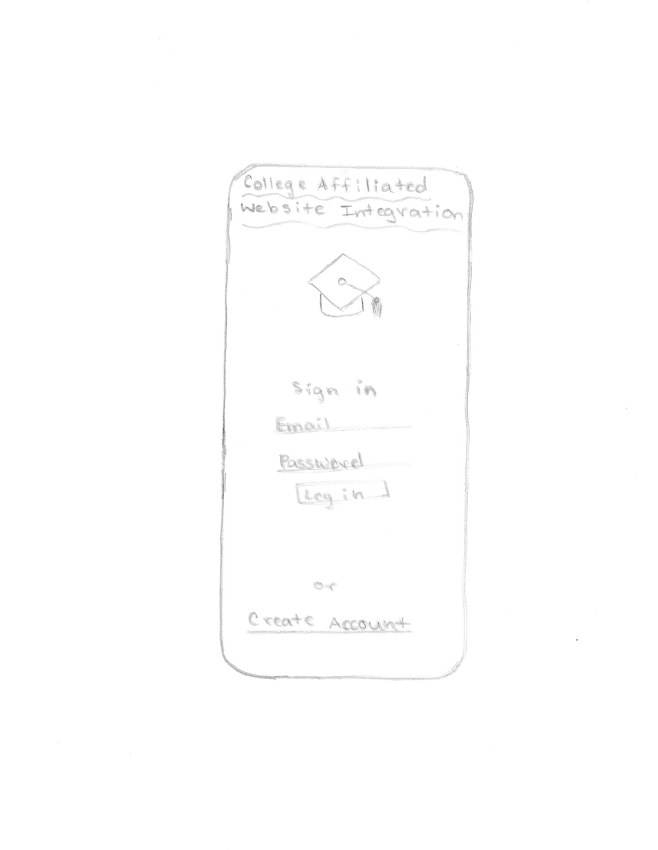 College Affiliated
Website Integration
Sign in
Email
Password
Log in
or
Create Account